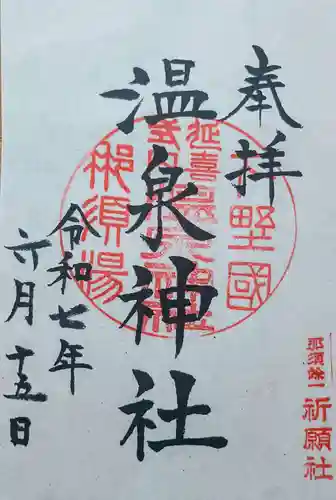 奉拝
温泉神社
令和七年
六月十五日
野國
延喜式内
温泉神社
那須湯
那須余一
祈願社